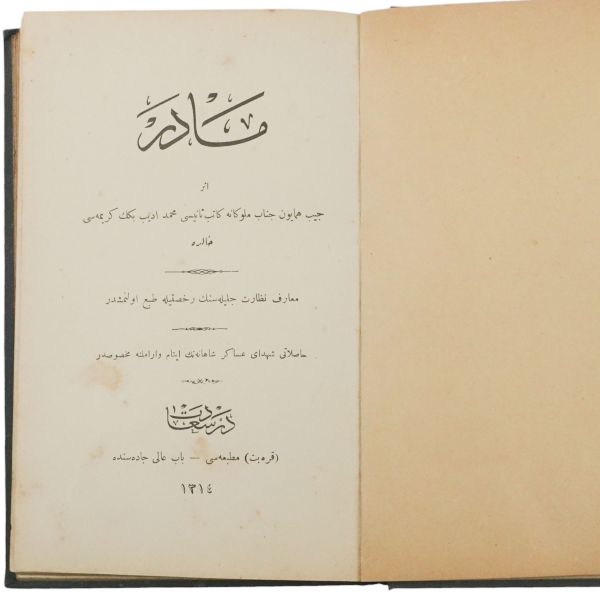 مادر
اثر
جيب همايون جناب ملوكانه كاتب ثانيسى محمد اديب بكك كريمه‌سى
خالده
معارف نظارت جليله‌سنك رخصتيله طبع اولنمشدر
حاصلاتى شهداى عساكر شاهانه‌نك ايتام واراملنه مخصوصدر
درسعادت
(قره‌بت) مطبعه‌سى — باب عالى جاده‌سنده
١٣١٤